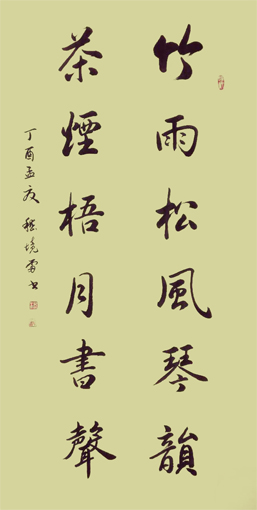 竹雨松風琴韻
茶煙梧月書聲
丁酉孟夏